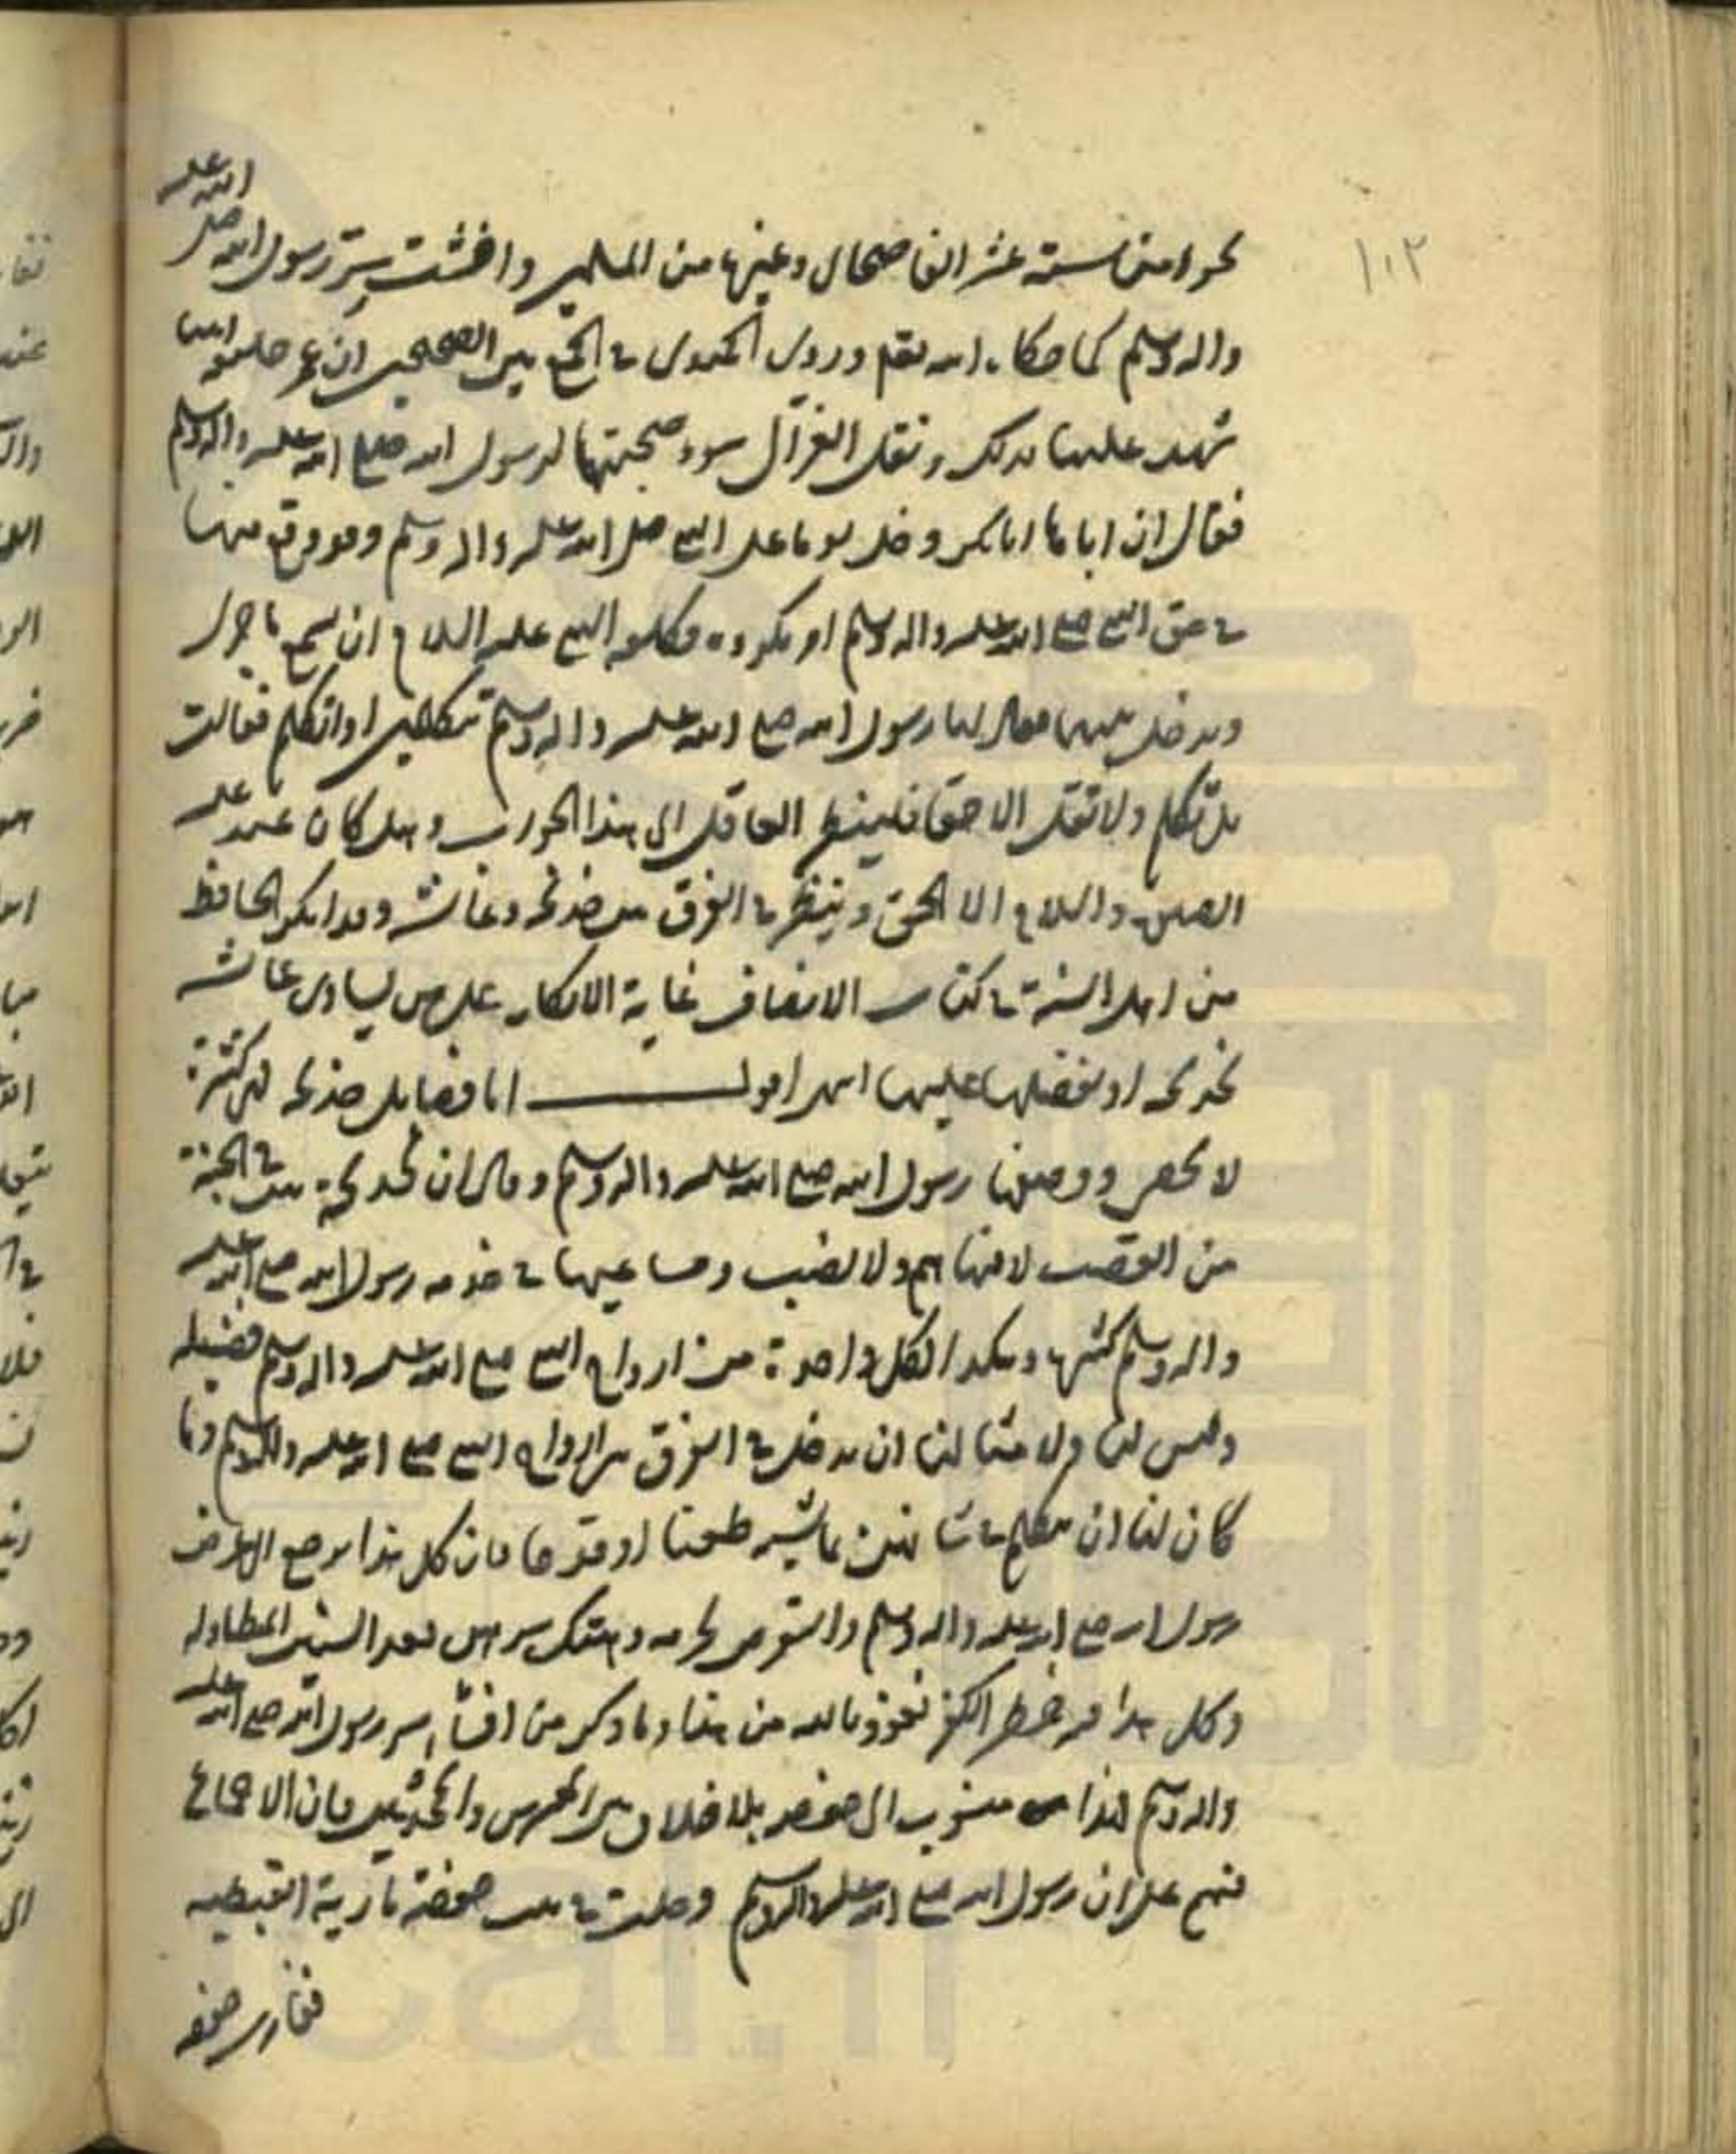 ١٠٢
نحوا من ستة عشر الفا صحابي وغيرها من المسلمين وافشت سر رسول الله صلى الله عليه
واله وسلم كما حكاه الله تعالى وروى الحميدي في الجمع بين الصحيحين ان عمر
شهد عليها بذلك ونقل الغزالي سوء صحبتها لرسول الله صلى الله عليه واله وسلم
فقال ان اباها ابا بكر دخل يوما على النبي صلى الله عليه واله وسلم وقد وقع منها
في حق النبي صلى الله عليه واله وسلم امر مكروه فكلفه النبي عليه السلام ان يسمع ما جرى
ويدخل بينهما فقال لها رسول الله صلى الله عليه واله وسلم تتكلمين او اتكلم فقالت
بل تكلم ولا تقل الا حقا فلينظر العاقل الى هذا الجواب وهل كان عنده عليه
الصلوة والسلام الا الحق وينظر في الفرق بين خديجة وعائشة وقد انكر الحافظ
من اهل السنة في كتاب الانصاف غاية الانكار على من يساوي عائشة
بخديجة او يفضلها عليها انتهى اقول اما فضايل خديجة فهي كثيرة
لا تحصى ووصفها رسول الله صلى الله عليه واله وسلم وقال ان لخديجة بيت في الجنة
من القصب لا فيها هم ولا نصب ومساعيها في خدمة رسول الله صلى الله عليه
واله وسلم كثيرة وهكذا لكل واحدة من ازواج النبي صلى الله عليه واله وسلم فضيلة
وليس لنا ولا مثالنا ان ندخل في الفرق بين ازواج النبي صلى الله عليه واله وسلم وما
كان لنا ان نتكلم في شانهن بما يشبه طعنا او قدحا فان كل هذا يرجع الى عرض
رسول الله صلى الله عليه واله وسلم والتعرض لحرمه وهتك سترهن بعد السنين المتطاولة
وكل هذا فيه خطر الكفر نعوذ بالله من هذا وما ذكر من افشاء سر رسول الله صلى الله عليه
واله وسلم فهذا منسوب الى حفصة بلا خلاف بين المفسرين والمحدثين فان الاجماع
منهم على ان رسول الله صلى الله عليه واله وسلم دخلت في بيت حفصة مارية القبطية
فغارت حفصه